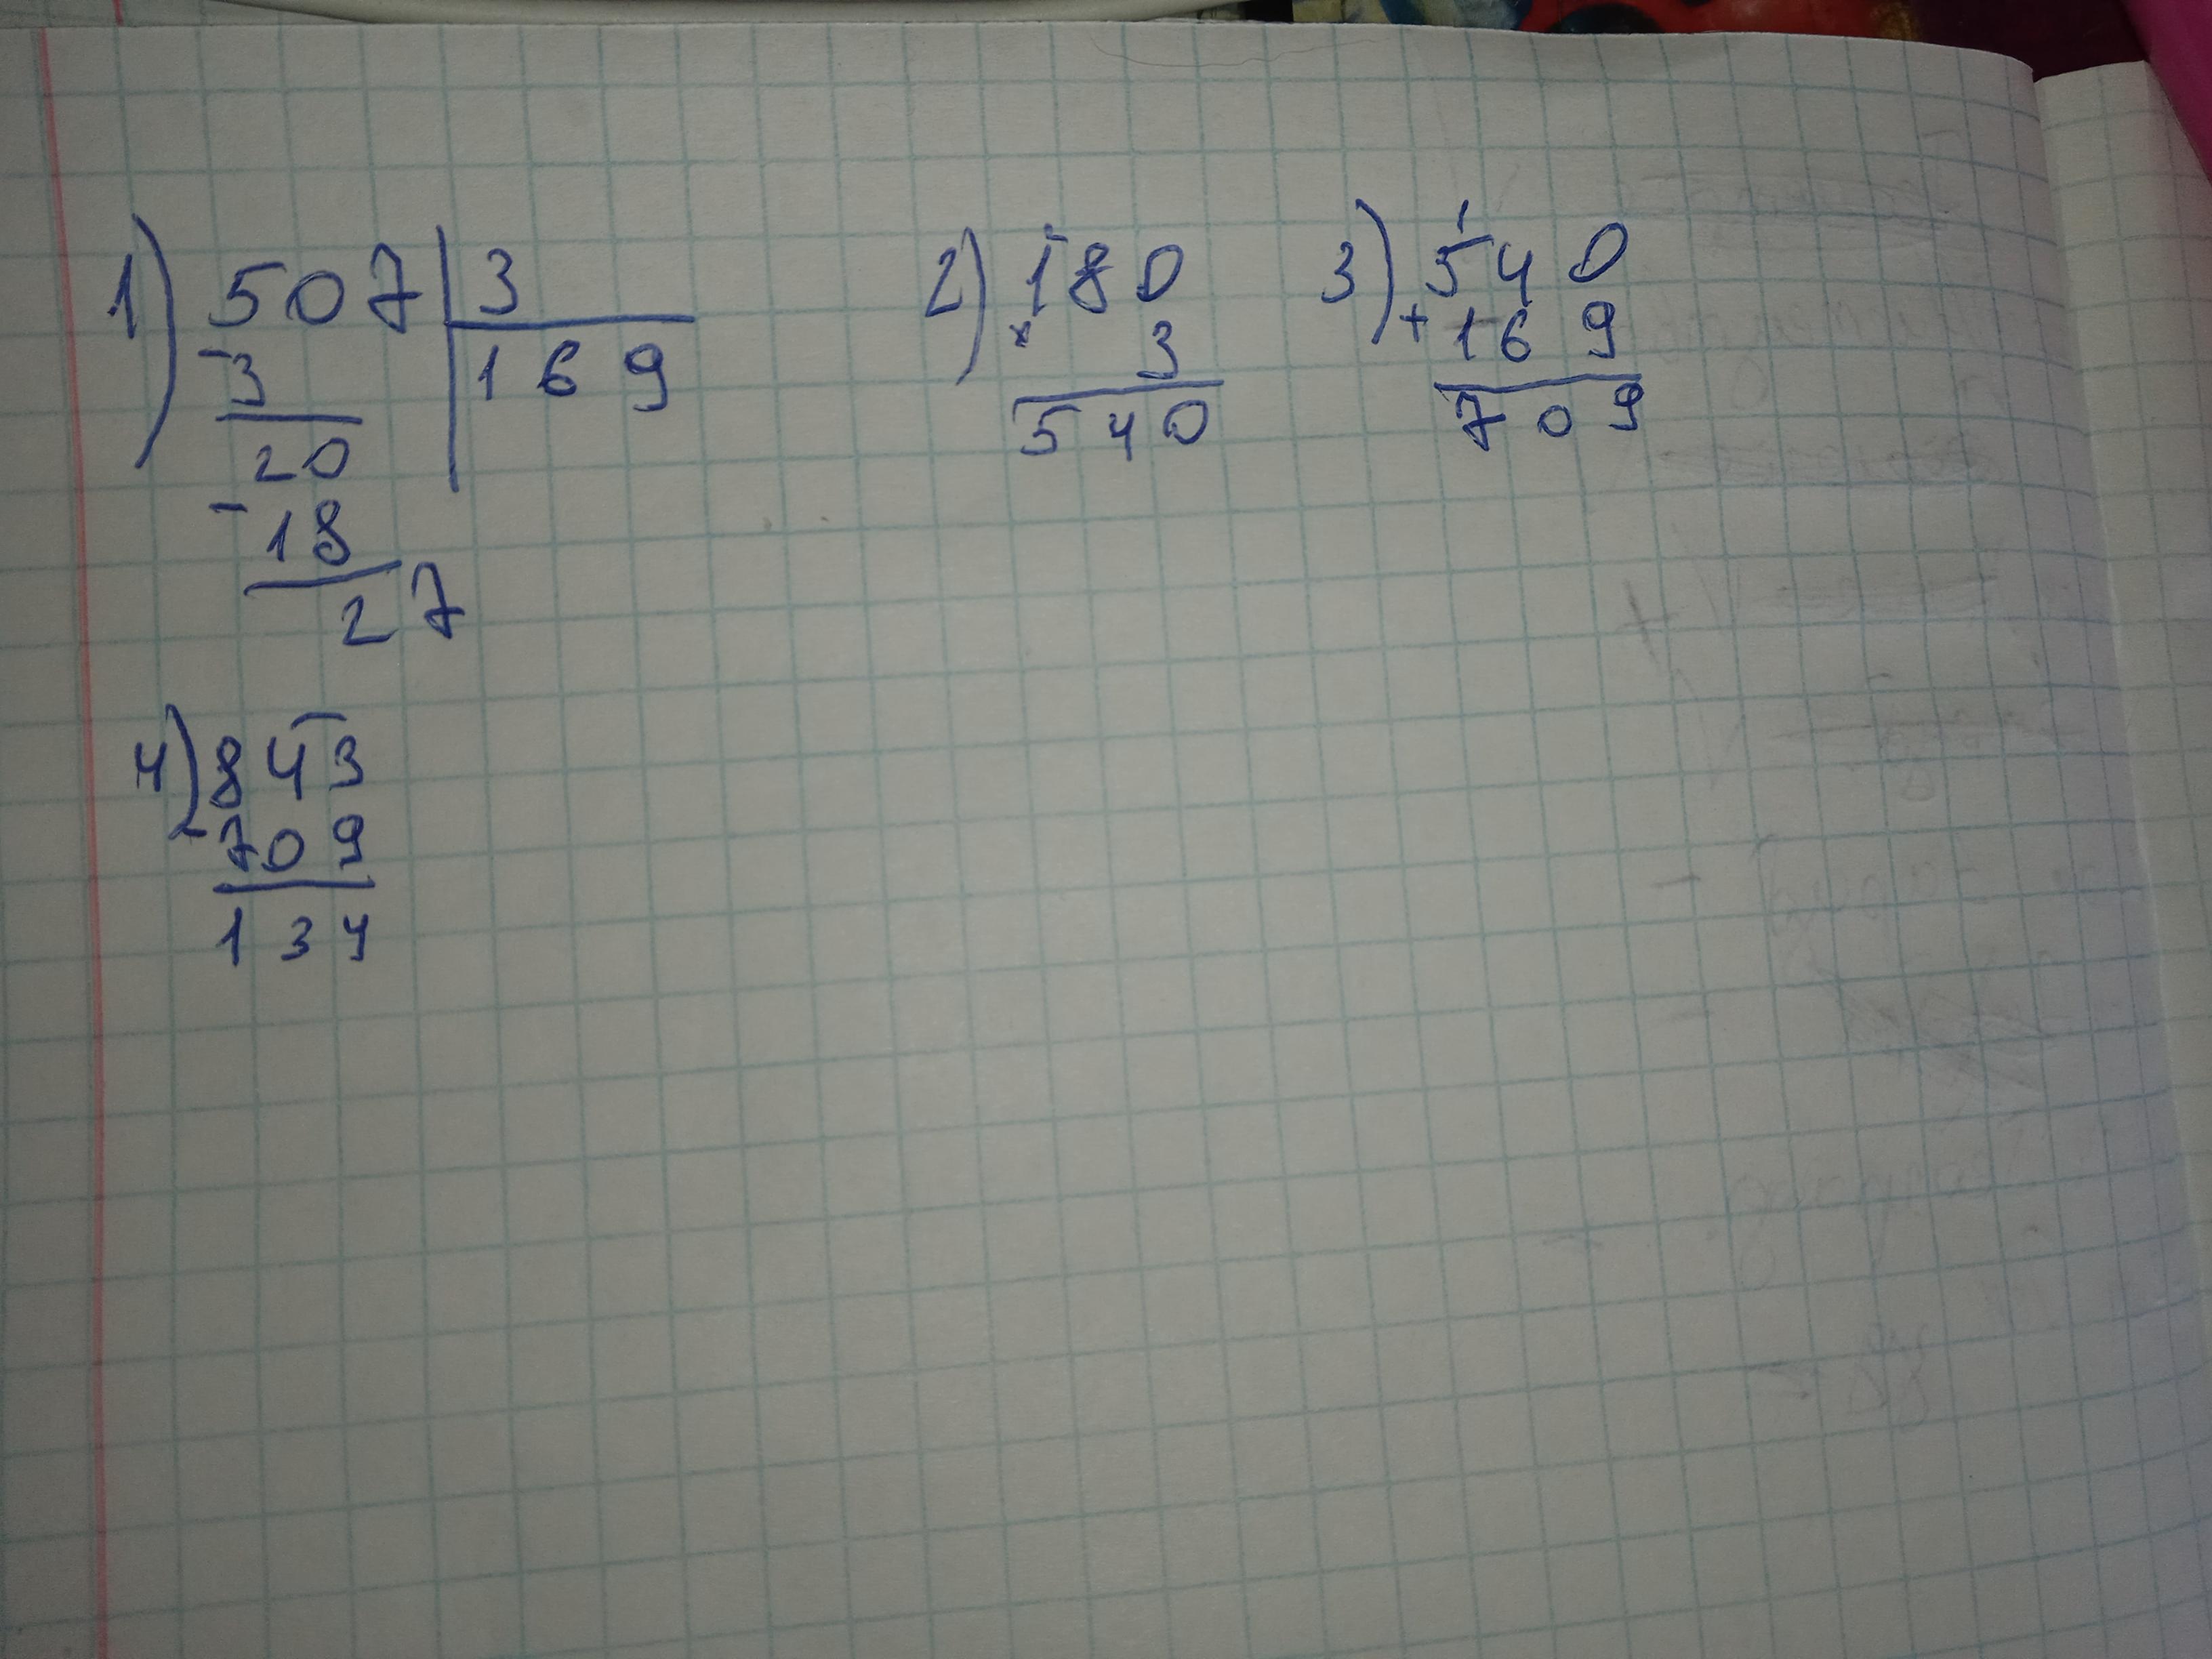 1) 507 | 3
- 3 | 169
20
- 18
27
2) 180
× 3
540
3) 1
540
+ 169
709
4) 843
- 709
134